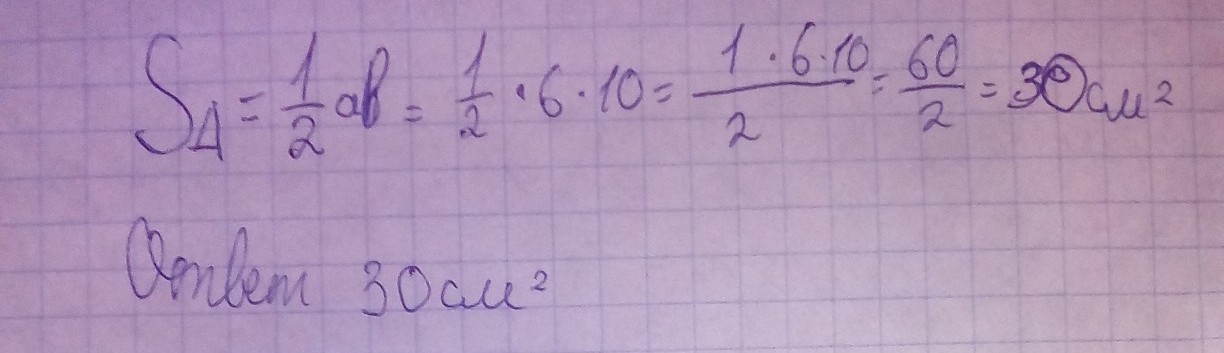 S△ = 1/2 ab = 1/2 · 6 · 10 = 1 · 6 · 10/2 = 60/2 = 30 см²
Ответ 30 см²